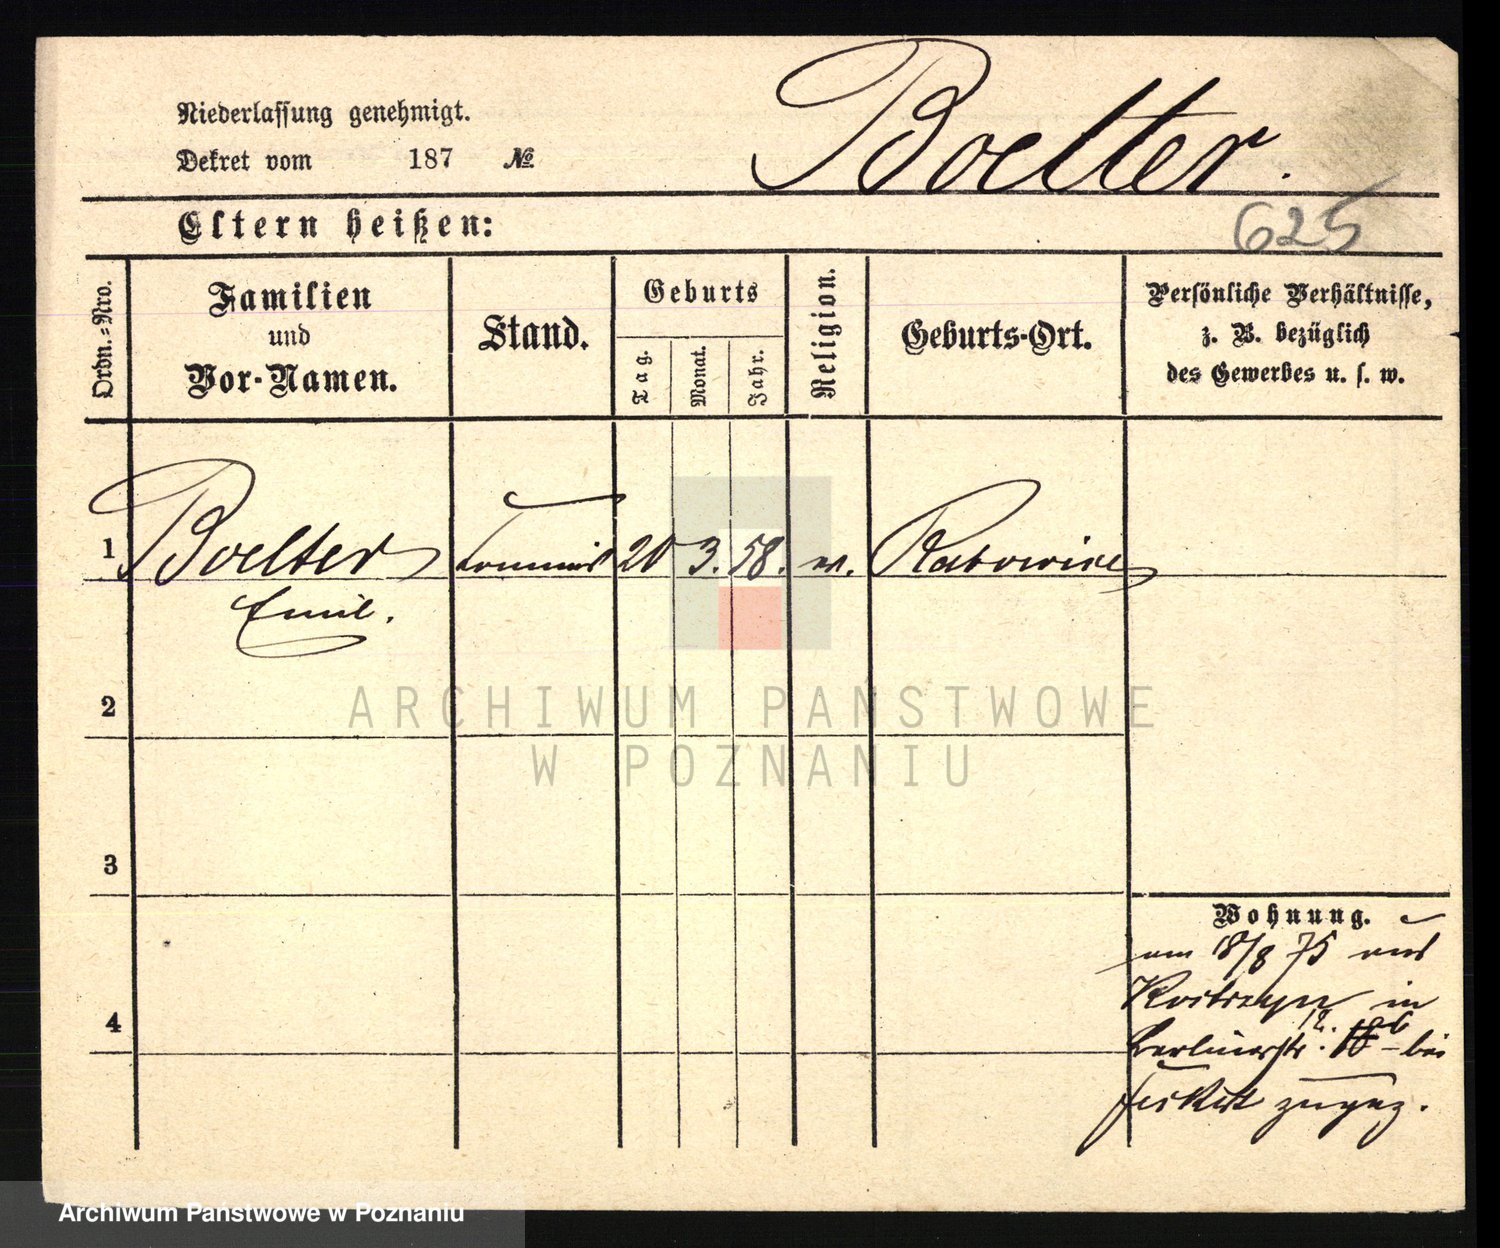 Niederlassung genehmigt.
Dekret vom 187 №
Boelter.
Eltern heißen:
625
Ordn.-Nro.
Familien
und
Vor-Namen.
Stand.
Geburts
Tag.
Monat.
Jahr.
Religion.
Geburts-Ort.
Persönliche Verhältnisse,
z. B. bezüglich
des Gewerbes u. s. w.
1 Boelter Commis 20 3. 58. ev. Ratowice
Emil.
2
ARCHIWUM PAŃSTWOWE
W POZNANIU
3
Wohnung.
am 18/8 75 aus
Kostrzyn in
12.
Berlinerstr. bei
zugez.
4
Archiwum Państwowe w Poznaniu